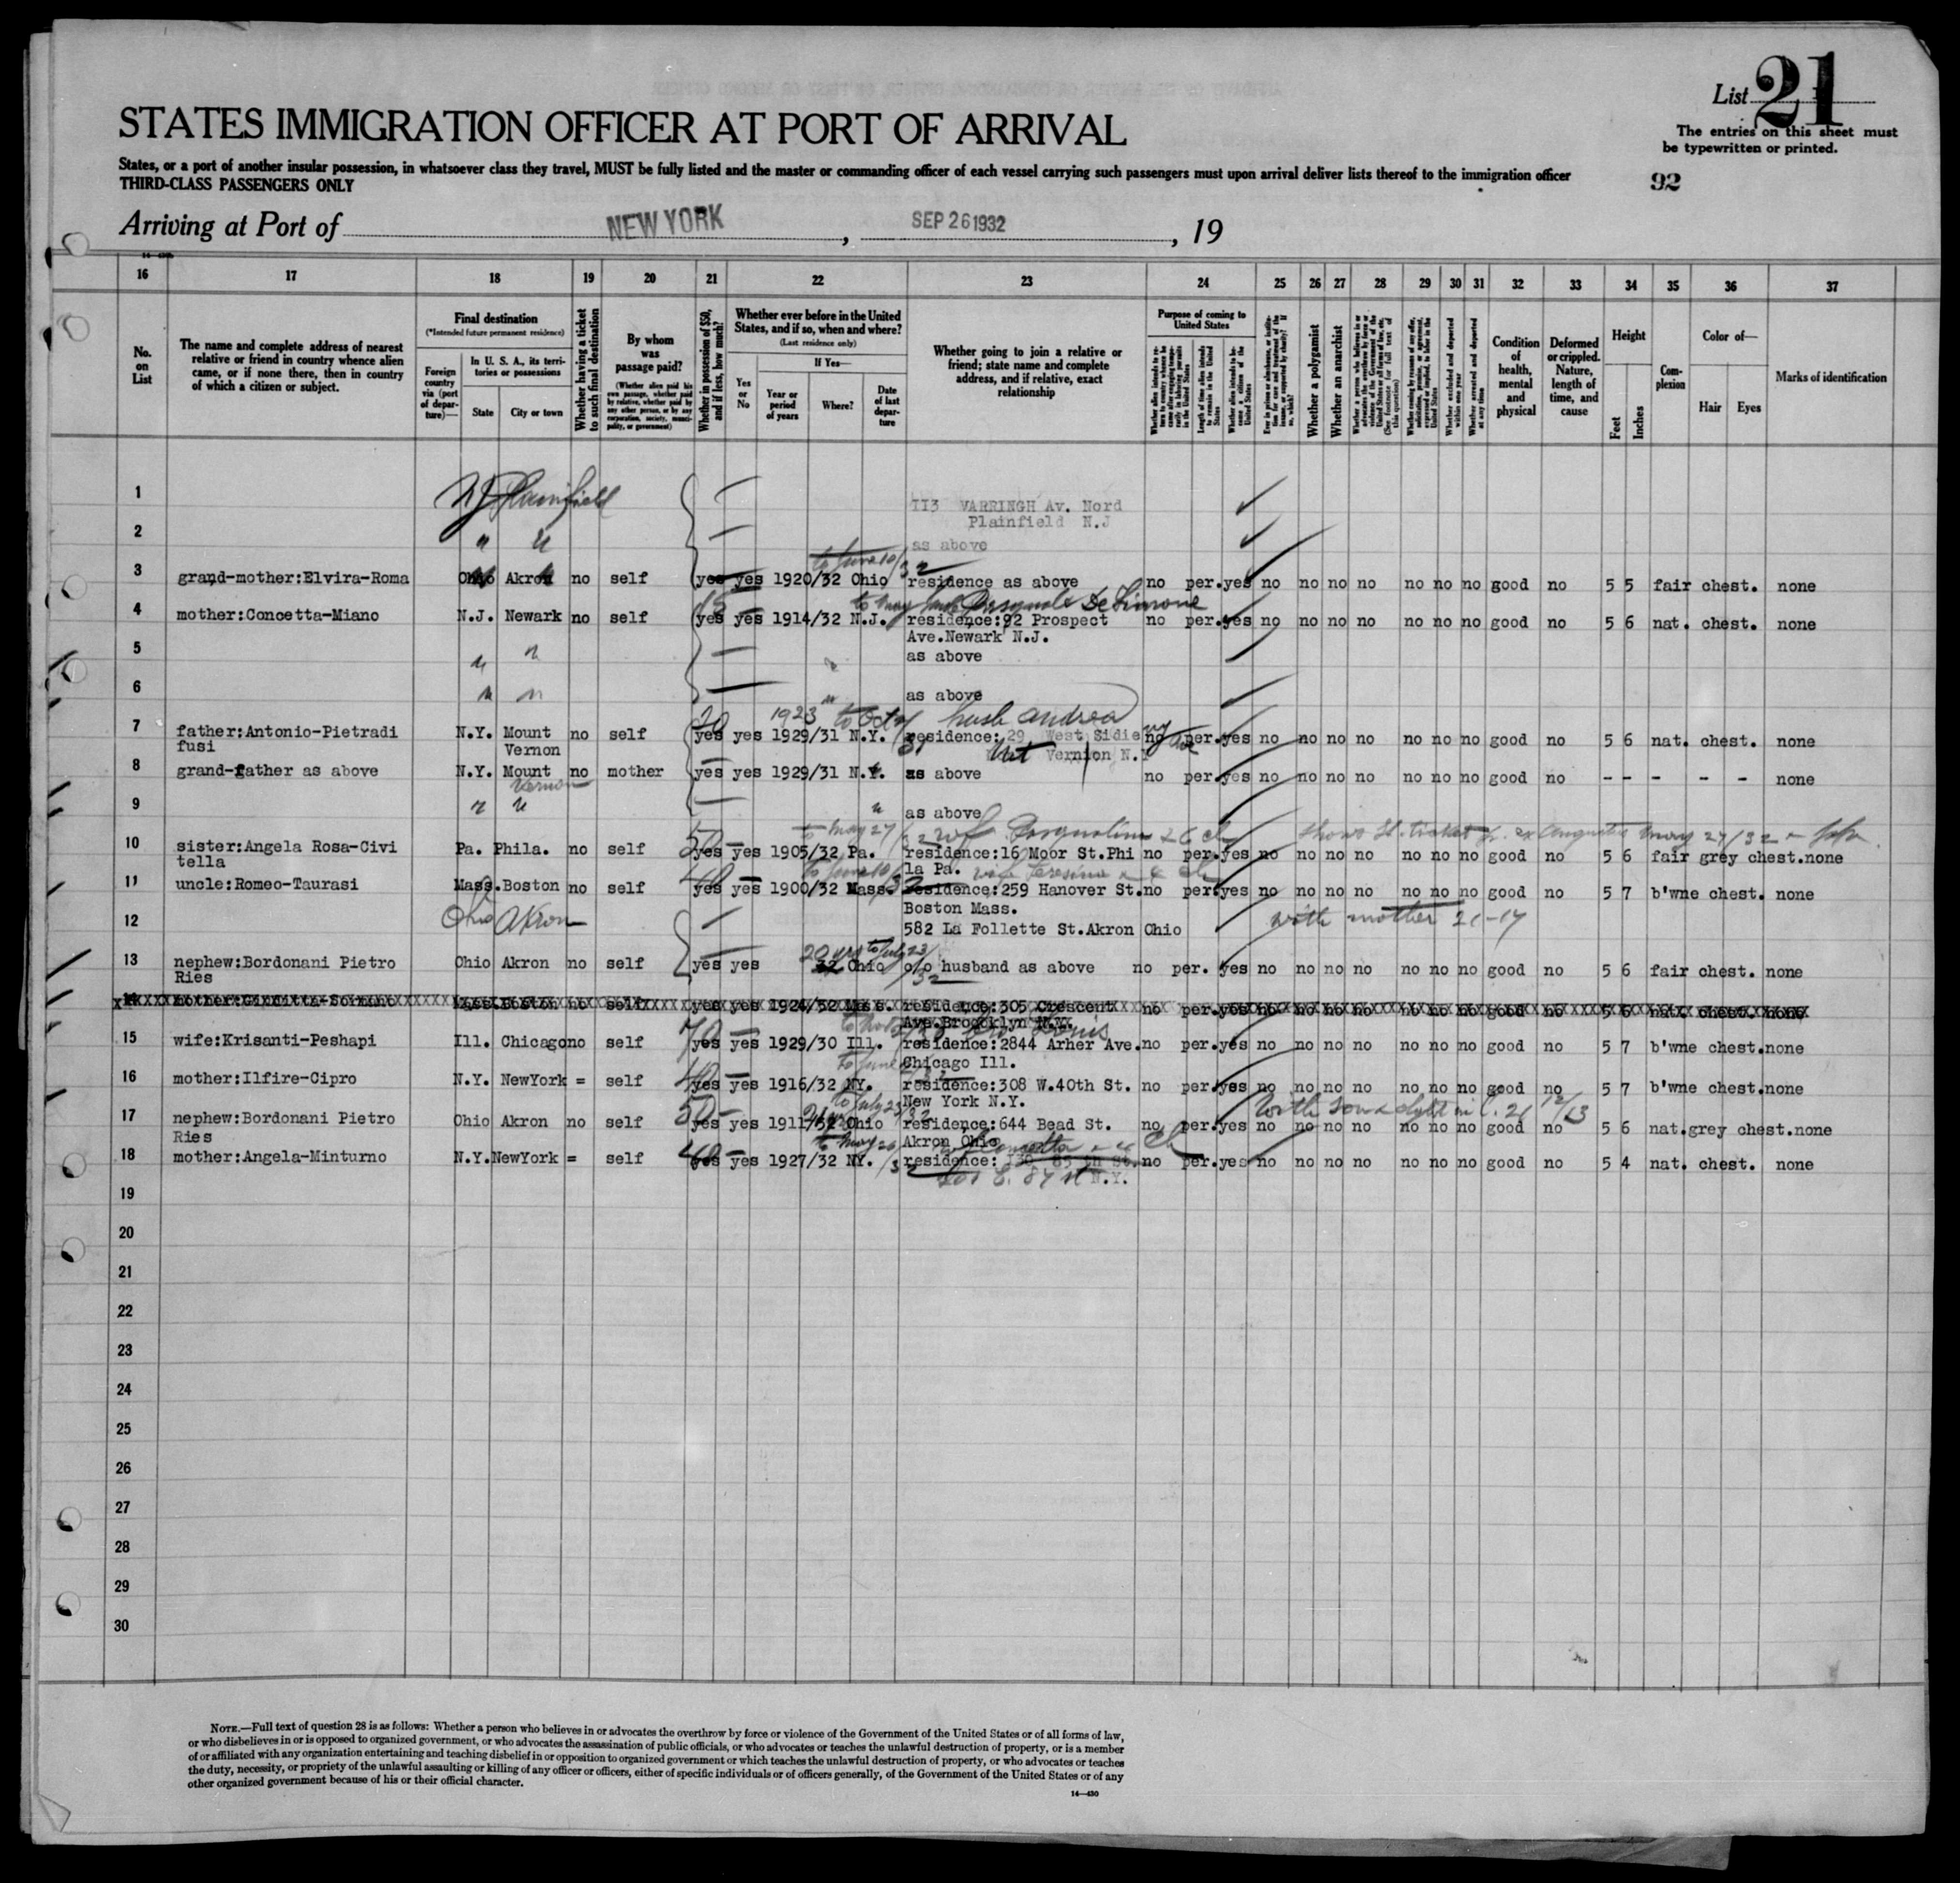 List 21
STATES IMMIGRATION OFFICER AT PORT OF ARRIVAL
The entries on this sheet must
be typewritten or printed.
States, or a port of another insular possession, in whatsoever class they travel, MUST be fully listed and the master or commanding officer of each vessel carrying such passengers must upon arrival deliver lists thereof to the immigration officer
THIRD-CLASS PASSENGERS ONLY
92
Arriving at Port of NEW YORK, SEP 26 1932, 19
16 17 18 19 20 21 22 23 24 25 26 27 28 29 30 31 32 33 34 35 36 37
No. on List
The name and complete address of nearest relative or friend in country whence alien came, or if none there, then in country of which a citizen or subject.
Final destination
(*Intended future permanent residence)
Foreign country via (port of departure)—
In U. S. A., its territories or possessions
State
City or town
Whether having a ticket to such final destination
By whom was passage paid?
(Whether alien paid his own passage, whether paid by relative, whether paid by any other person, or by any corporation, society, municipality, or government)
Whether in possession of $50, and if less, how much?
Whether ever before in the United States, and if so, when and where?
(Last residence only)
Yes or No
If Yes—
Year or period of years
Where?
Date of last departure
Whether going to join a relative or friend; state name and complete address, and if relative, exact relationship
Purpose of coming to United States
Length of time alien intends to remain in the United States
Whether alien intends to become a citizen of the United States
Whether a polygamist
Whether an anarchist
Whether excluded and deported within one year
Whether arrested and deported at any time
Condition of health, mental and physical
Deformed or crippled. Nature, length of time, and cause
Height
Feet
Inches
Complexion
Color of—
Hair
Eyes
Marks of identification
1 NJ Plainfield 113 VARRINGH Av. Nord
Plainfield N.J
2 " " as above
to June 10/32
3 grand-mother:Elvira-Roma Ohio Akron no self yes yes 1920/32 Ohio residence as above no per. yes no no no no no no no good no 5 5 fair chest. none
Pasquale DeSimone
4 mother:Concetta-Miano N.J. Newark no self yes yes 1914/32 N.J. residence:92 Prospect no per. yes no no no no no no no good no 5 6 nat. chest. none
Ave.Newark N.J.
5 " " as above
6 " " as above
1923 to Oct husb Andrea
7 father:Antonio-Pietradi N.Y. Mount no self yes yes 1929/31 N.Y. residence: 29 West Sidie no per. yes no no no no no no no good no 5 6 nat. chest. none
fusi Vernon Mt Vernion N.Y
8 grand-father as above N.Y. Mount no mother yes yes 1929/31 N.Y. as above no per. yes no no no no no no no good no - - - - - none
Vernon
9 " " " as above
to May 27/32 wf Pasqualina
10 sister:Angela Rosa-Civi Pa. Phila. no self 50 yes yes 1905/32 Pa. residence:16 Moor St.Phi no per. yes no no no no no no no good no 5 6 fair grey chest.none
tella la Pa.
to June 10/32
11 uncle:Romeo-Taurasi Mass. Boston no self 40 yes yes 1900/32 Mass. residence:259 Hanover St. no per. yes no no no no no no no good no 5 7 b'wne chest. none
Boston Mass.
12 Ohio Akron 582 La Follette St.Akron Ohio with mother 21-17
20 yrs to July 23/32
13 nephew:Bordonani Pietro Ohio Akron no self yes yes 32 Ohio c/o husband as above no per. yes no no no no no no no good no 5 6 fair chest. none
Ries
14 Mass. Boston no self yes yes 1924/32 Mass. residence:305 Crescent no per. yes no no no no no no no good no 5 6 nat. chest. none
Ave.Broocklyn N.Y.
15 wife:Krisanti-Peshapi Ill. Chicago no self 70 yes yes 1929/30 Ill. residence:2844 Arher Ave. no per. yes no no no no no no no good no 5 7 b'wne chest.none
Chicago Ill.
to June
16 mother:Ilfire-Cipro N.Y. NewYork = self 40 yes yes 1916/32 NY. residence:308 W.40th St. no per. yes no no no no no no no good no 5 7 b'wne chest.none
New York N.Y.
to July 23/32
17 nephew:Bordonani Pietro Ohio Akron no self 50 yes yes 1911/32 Ohio residence:644 Bead St. no per. yes no no no no no no no good no 5 6 nat.grey chest.none
Ries Akron Ohio
to May 26/32
18 mother:Angela-Minturno N.Y. NewYork = self 40 yes yes 1927/32 NY. residence: no per. yes no no no no no no no good no 5 4 nat. chest. none
E. 87 st N.Y.
19
20
21
22
23
24
25
26
27
28
29
30
NOTE.—Full text of question 28 is as follows: Whether a person who believes in or advocates the overthrow by force or violence of the Government of the United States or of all forms of law,
or who disbelieves in or is opposed to organized government, or who advocates the assassination of public officials, or who advocates or teaches the unlawful destruction of property, or is a member
of or affiliated with any organization entertaining and teaching disbelief in or opposition to organized government or which teaches the unlawful destruction of property, or who advocates or teaches
the duty, necessity, or propriety of the unlawful assaulting or killing of any officer or officers, either of specific individuals or of officers generally, of the Government of the United States or of any
other organized government because of his or their official character.
14—430